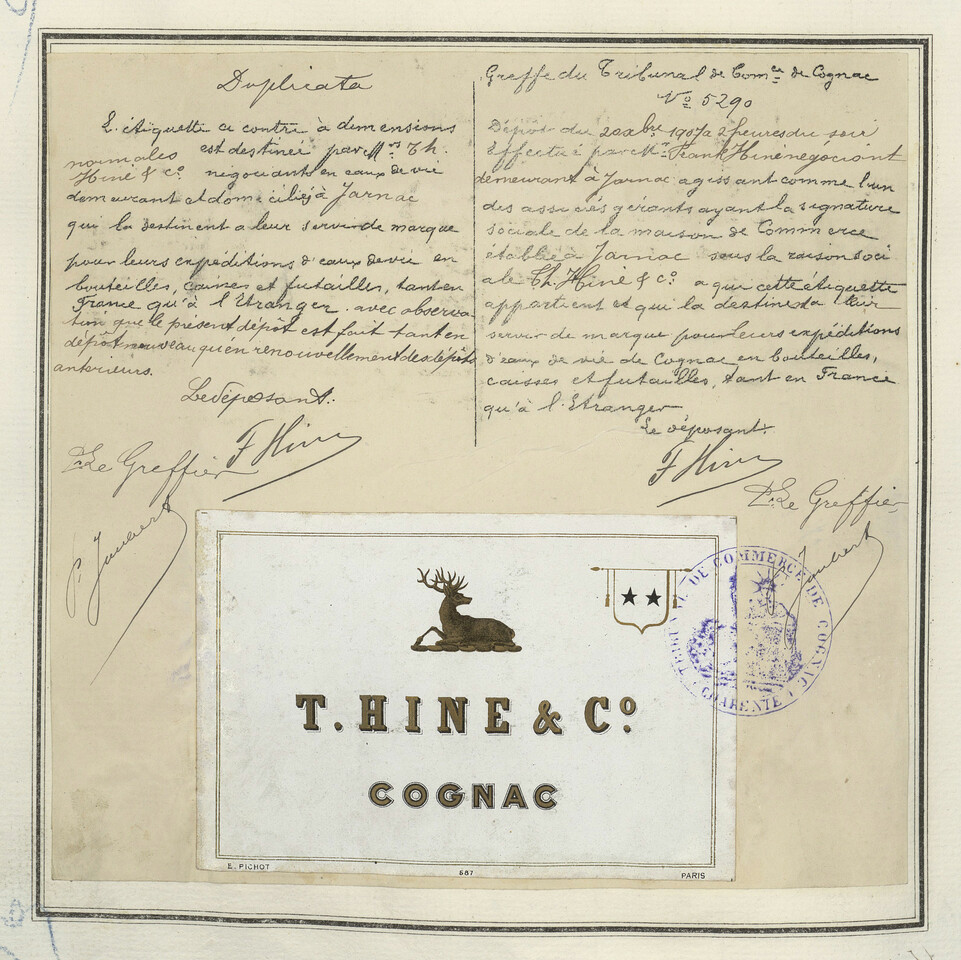 Duplicata
L'étiquette ci contre à demensions
normales est destinée par Mrs Th.
Hine & Co. négociants en eaux de vie
demeurant et domiciliés à Jarnac
qui la destinent a leur servir de marque
pour leurs expéditions d'eaux de vie en
bouteilles, caisses et futailles, tant en
France qu'à l'Etranger. avec observa-
tion que le présent dépôt est fait tant en
dépôt nouveau qu'en renouvellement des dépôts
antérieurs.
Le déposant.
F Hine
Pr. Le Greffier
P. Joubert
Greffe du Tribunal de Comce de Cognac
No 5290
Dépôt du 20 xbre 1907 à 2 heures du soir
Effectué par Mr. Frank Hine négociant
demeurant à Jarnac agissant comme l'un
des associés gérants ayant la signature
sociale de la maison de Commerce
établie à Jarnac sous la raison soci
ale Th. Hine & Co. a qui cette étiquette
appartient et qui la destine à leur
servir de marque pour leurs expéditions
d'eaux de vie de Cognac en bouteilles,
caisses et futailles, tant en France
qu'à l'Etranger
Le déposant.
F Hine
Pr. Le Greffier
Joubert
TRIBUNAL DE COMMERCE DE COGNAC
CHARENTE
T. HINE & Co.
COGNAC
E. PICHOT
587
PARIS